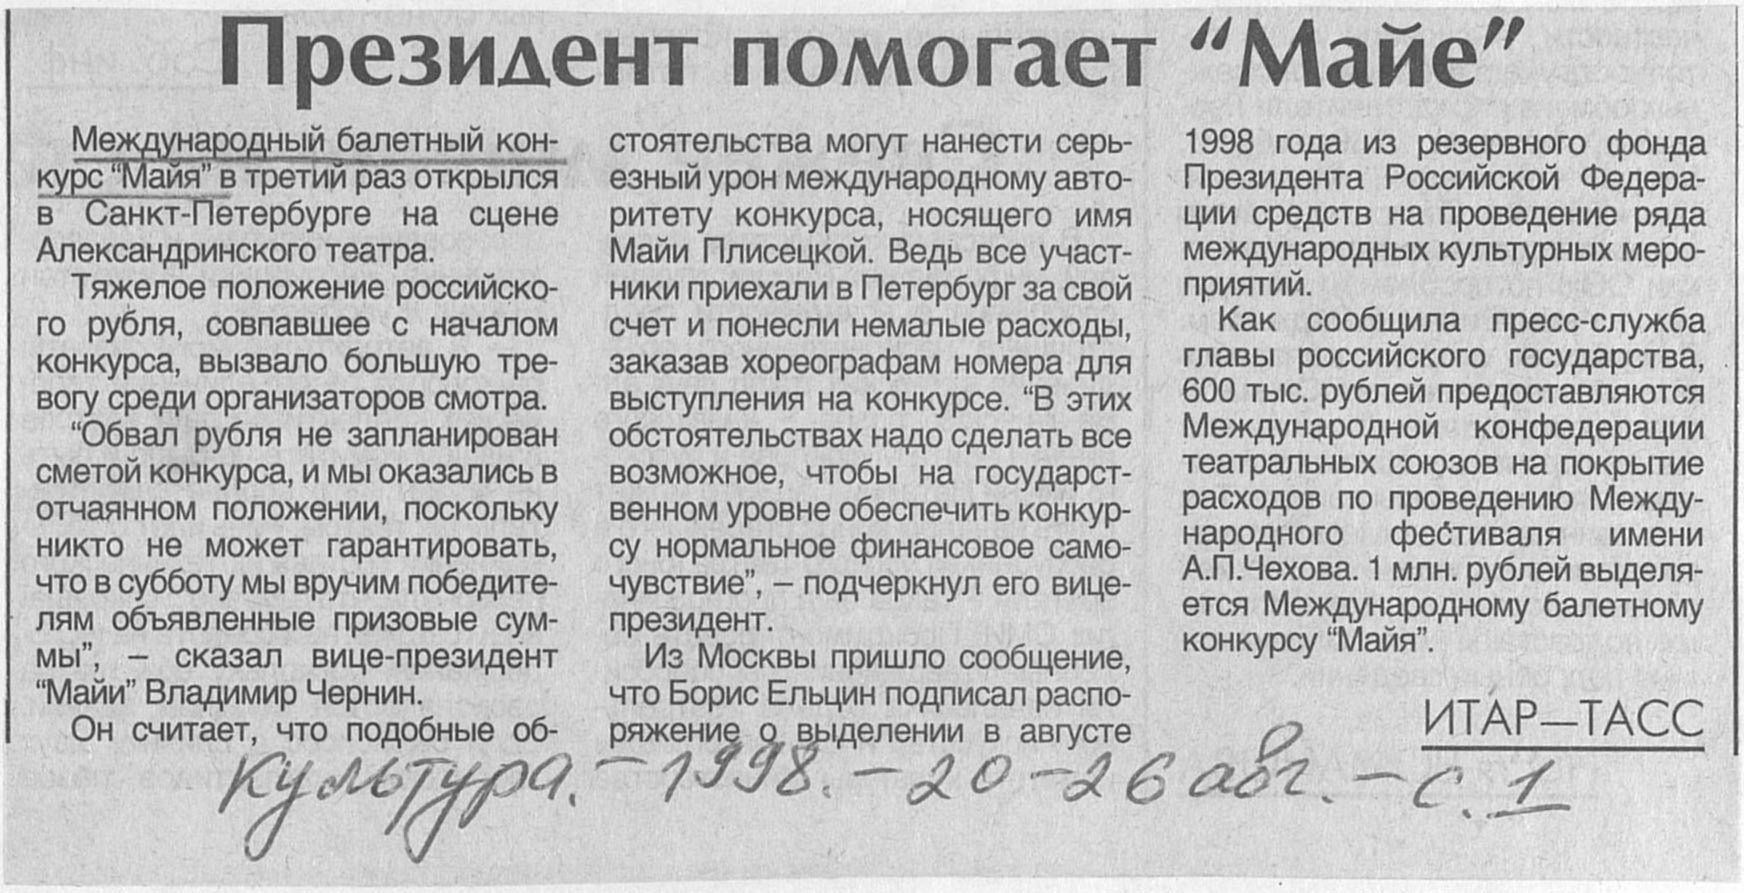 Президент помогает “Майе”
Международный балетный кон-
курс “Майя” в третий раз открылся
в Санкт-Петербурге на сцене
Александринского театра.
Тяжелое положение российско-
го рубля, совпавшее с началом
конкурса, вызвало большую тре-
вогу среди организаторов смотра.
“Обвал рубля не запланирован
сметой конкурса, и мы оказались в
отчаянном положении, поскольку
никто не может гарантировать,
что в субботу мы вручим победите-
лям объявленные призовые сум-
мы”, – сказал вице-президент
“Майи” Владимир Чернин.
Он считает, что подобные об-
стоятельства могут нанести серь-
езный урон международному авто-
ритету конкурса, носящего имя
Майи Плисецкой. Ведь все участ-
ники приехали в Петербург за свой
счет и понесли немалые расходы,
заказав хореографам номера для
выступления на конкурсе. “В этих
обстоятельствах надо сделать все
возможное, чтобы на государст-
венном уровне обеспечить конкур-
су нормальное финансовое само-
чувствие”, – подчеркнул его вице-
президент.
Из Москвы пришло сообщение,
что Борис Ельцин подписал распо-
ряжение о выделении в августе
1998 года из резервного фонда
Президента Российской Федера-
ции средств на проведение ряда
международных культурных меро-
приятий.
Как сообщила пресс-служба
главы российского государства,
600 тыс. рублей предоставляются
Международной конфедерации
театральных союзов на покрытие
расходов по проведению Между-
народного фестиваля имени
А.П.Чехова. 1 млн. рублей выделя-
ется Международному балетному
конкурсу “Майя”.
ИТАР—ТАСС
Культура. – 1998. – 20 – 26 авг. – с. 1